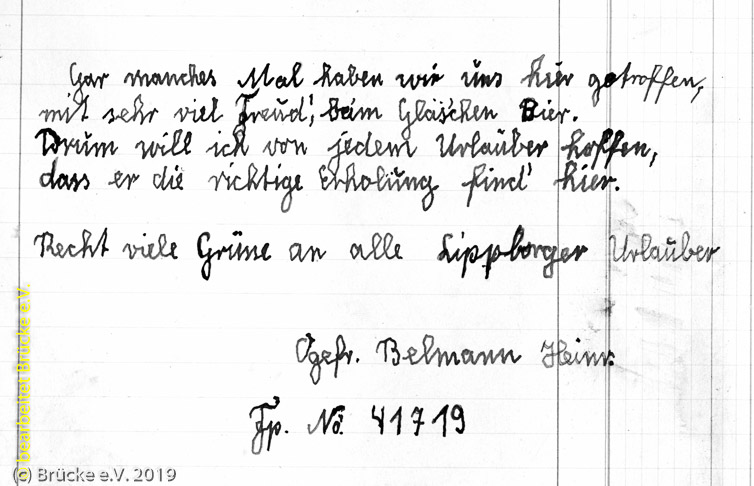 Gar manches Mal haben wir uns hier getroffen,
mit sehr viel Freud', beim Gläs'chen Bier.
Drum will ich von jedem Urlauber hoffen,
dass er die richtige Erholung find' hier.
Recht viele Grüsse an alle Lippborger Urlauber
Ogefr. Belmann Heinr.
Fp. No. 41719
© bearbeitet Brücke e.V.
(c) Brücke e.V. 2019